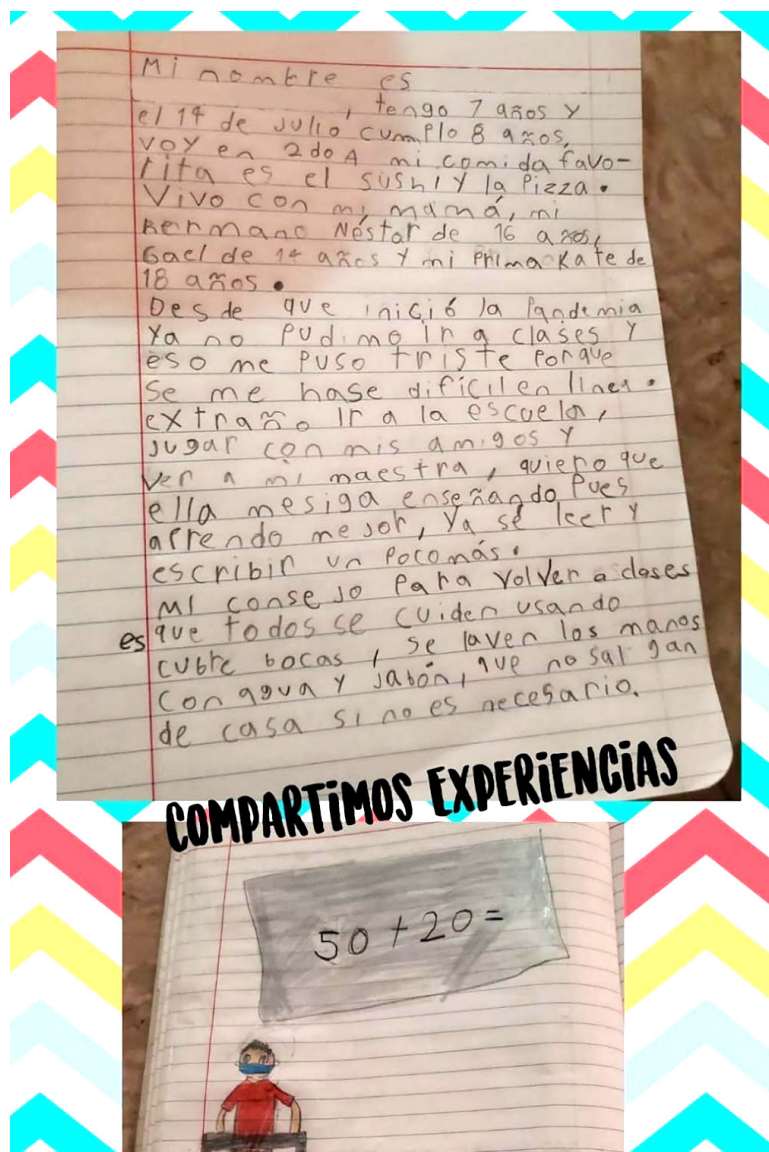 Mi nombre es
, tengo 7 años y
el 14 de Julio cumplo 8 años,
voy en 2do A mi comida favo-
rita es el sushi y la Pizza.
Vivo con mi mamá, mi
hermano Néstor de 16 años,
Gael de 14 años y mi Prima Kate de
18 años.
Des de que inició la Pandemia
Ya no pudimo ir a clases y
eso me puso triste Porque
se me hase dificil en linea.
extraño Ir a la escuela,
Jugar con mis amigos y
ver a mi maestra, quiero que
ella mesiga enseñando Pues
aprendo mejor, ya sé leer y
escribir un Poco más.
Mi consejo Para volver a clases
es que todos se cuiden usando
cubre bocas, se laven los manos
con agua y Jabón, que no sal gan
de casa si no es necesario.
COMPARTiMOS EXPERiENCiAS
50 + 20 =